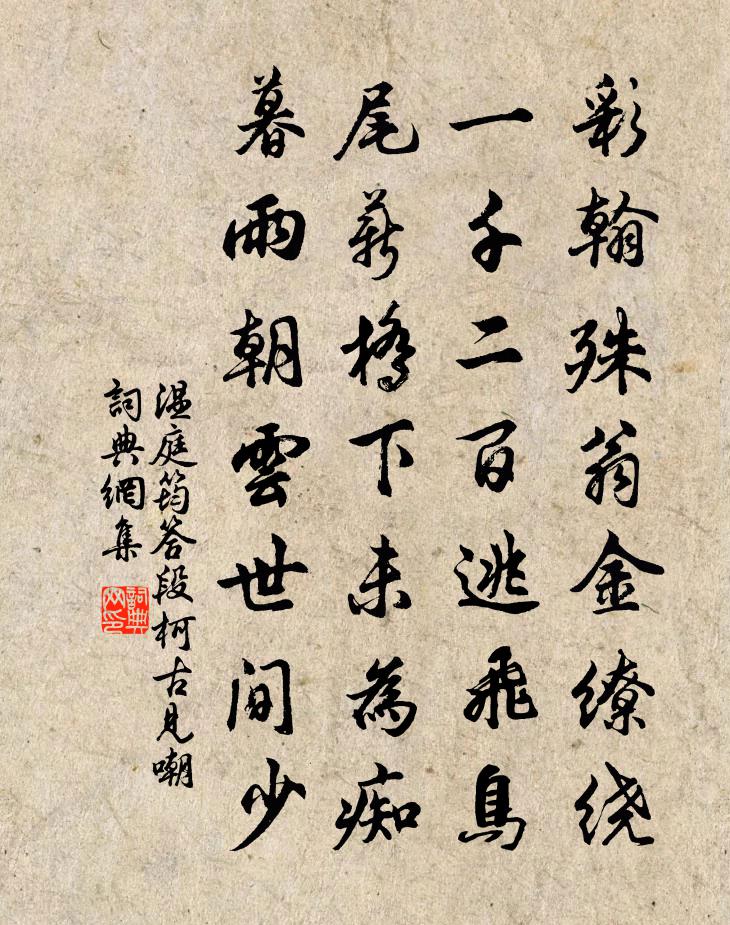 彩翰殊翁金繚绕
一千二百逃飛鳥
尾薪橋下未為痴
暮雨朝雲世間少
温庭筠答段柯古見嘲
詞典網集
詞典网印